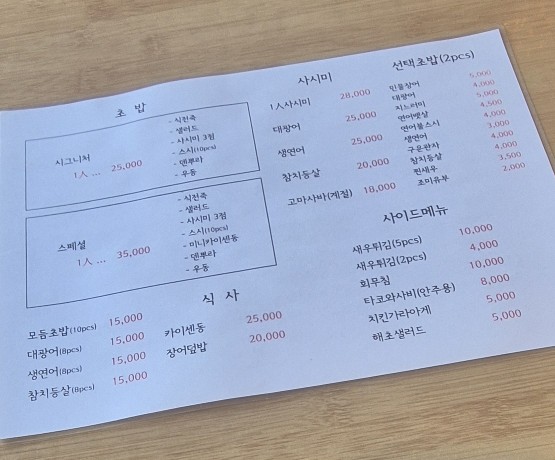 초 밥
시그니처
1人 ... 25,000
- 식전죽
- 샐러드
- 사시미 3점
- 스시(10pcs)
- 덴뿌라
- 우동
스페셜
1人 ... 35,000
- 식전죽
- 샐러드
- 사시미 3점
- 스시(10pcs)
- 미니카이센동
- 덴뿌라
- 우동
식 사
모듬초밥(10pcs) 15,000
대광어(8pcs) 15,000
생연어(8pcs) 15,000
참치등살(8pcs) 15,000
카이센동 25,000
장어덮밥 20,000
사시미
1人사시미 28,000
대광어 25,000
생연어 25,000
참치등살 20,000
고마사바(계절) 18,000
선택초밥(2pcs)
민물장어 5,000
대광어 4,000
지느러미 5,000
연어뱃살 4,500
연어불스시 4,000
생연어 3,000
구운관자 4,000
참치등살 4,000
찐새우 3,500
조미유부 2,000
사이드메뉴
새우튀김(5pcs) 10,000
새우튀김(2pcs) 4,000
회무침 10,000
타코와사비(안주용) 8,000
치킨가라아게 5,000
해초샐러드 5,000